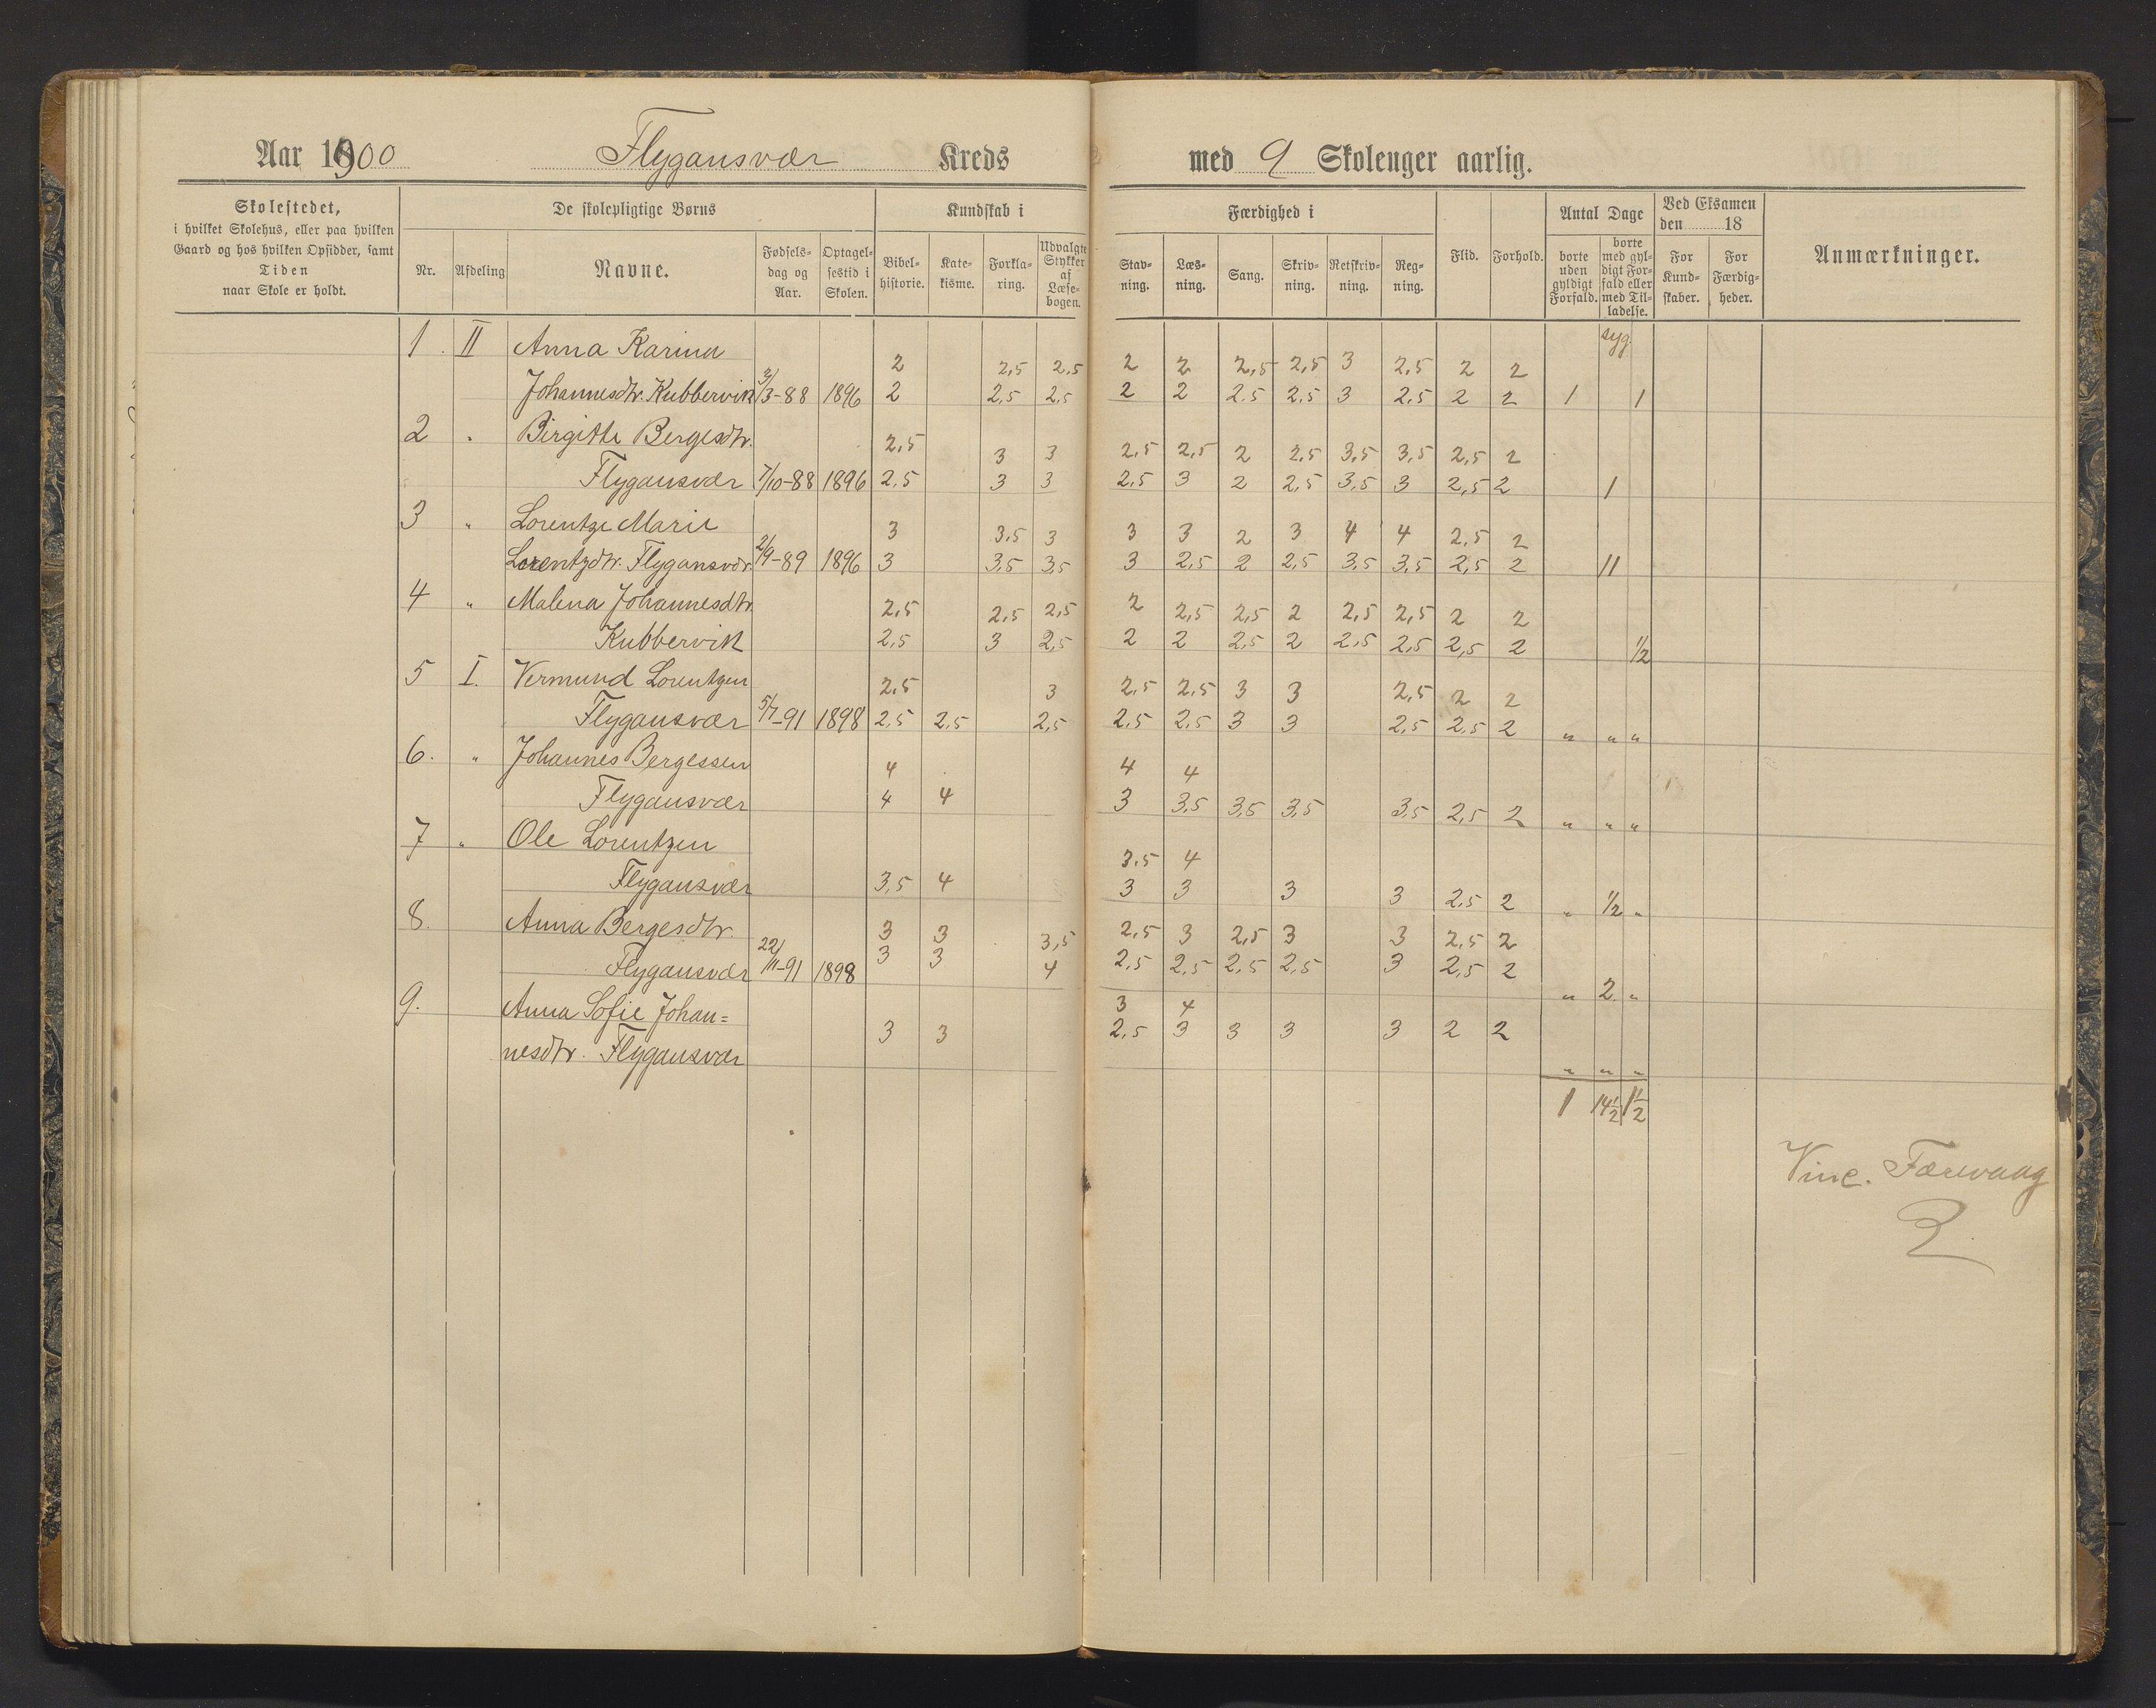 Aar 1900 Flygansvær Kreds med 9 Skolenger aarlig.
Skolestedet,
i hvilket Skolehus, eller paa hvilken
Gaard og hos hvilken Opsidder, samt
Tiden
naar Skole er holdt.
De skolepligtige Børns
Nr.
Afdeling
Navne.
Fødsels-
dag og
Aar.
Optagel-
sestid i
Skolen.
Kundskab i
Bibel-
historie.
Kate-
kisme.
Forkla-
ring.
Udvalgte
Stykker
af
Læse-
bogen.
Færdighed i
Stav-
ning.
Læs-
ning.
Sang.
Skriv-
ning.
Retskriv-
ning.
Reg-
ning.
Flid.
Forhold.
Antal Dage
borte
uden
gyldigt
Forfald.
borte
med gyl-
digt For-
fald eller
med Til-
ladelse.
Ved Eksamen
den 18
For
Kund-
skaber.
For
Færdig-
heder.
Anmærkninger.
syg.
1. II Anna Karina 2 2,5 2,5 2 2 2,5 2,5 3 2,5 2 2
Johannesdtr. Kubbervik 3/3-88 1896 2 2,5 2,5 2 2 2.5 2.5 3 2,5 2 2 1 1
2 " Birgitte Bergesdtr. 2,5 3 3 2,5 2,5 2 2,5 3,5 3,5 2,5 2
Flygansvær 7/10-88 1896 2,5 3 3 2,5 3 2 2,5 3,5 3 2,5 2 1
3 " Lorentze Marie 3 3,5 3 3 3 2 3 4 4 2,5 2
Lorentzdtr. Flygansvær 2/9-89 1896 3 3,5 3,5 3 2,5 2 2,5 3,5 3,5 2,5 2 11
4 " Malena Johannesdtr. 2,5 2,5 2,5 2 2,5 2,5 2 2,5 2,5 2 2
Kubbervik 2,5 3 2,5 2 2 2,5 2 2,5 2,5 2,5 2 1/2
5 I. Vermund Lorentzen 2,5 3 2,5 2,5 3 3 2,5 2 2
Flygansvær 5/7-91 1898 2,5 2,5 2,5 2,5 2,5 3 3 2,5 2,5 2 " " "
6. " Johannes Bergessen 4 4 4
Flygansvær 4 4 3 3,5 3,5 3,5 3,5 2,5 2 " " "
7 " Ole Lorentzen 3,5 4
Flygansvær 3,5 4 3 3 3 3 2,5 2 " 1/2 "
8. Anna Bergesdtr. 3 3 3,5 2,5 3 2,5 3 3 2,5 2
Flygansvær 22/11-91 1898 3 3 4 2,5 2,5 2,5 2,5 3 2,5 2 " 2 "
9. Anna Sofie Johan= 3 4
nesdtr. Flygansvær 3 3 2,5 3 3 3 3 2 2 " " "
1 14 1/2 1 1/2
Vinc. Færevaag